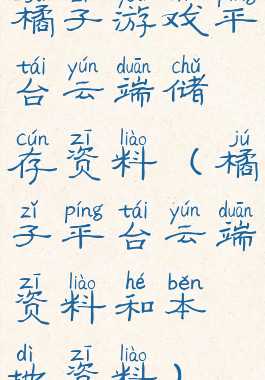 橘子游戏平
tái yún duān chǔ
台云端储
cún zī liào jú
存资料（橘
zǐ píng tái yún duān
子平台云端
zī liào hé běn
资料和本
dì zī liào
地资料）